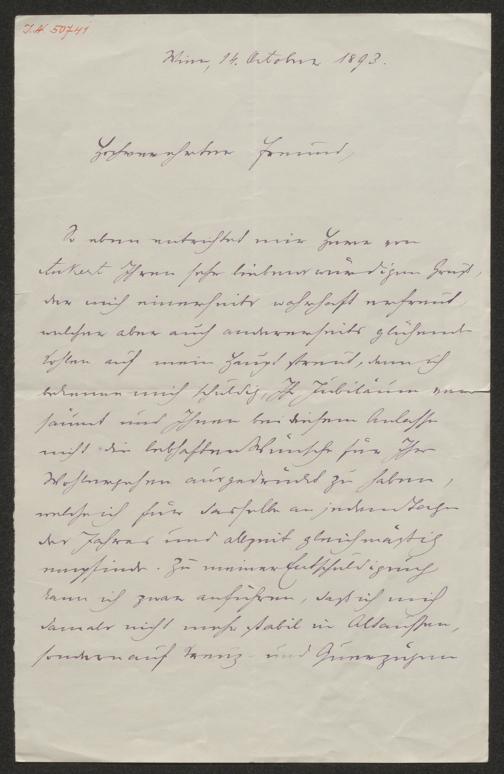 J.N. 50741
Wien, 14. October 1893.
Hochverehrter Freund,
So eben entrichtet mir Herr von
Ihren sehr liebenswürdigen Gruß,
der mich einerseits wahrhaft erfreut,
welcher aber auch andererseits glühende
Kohlen auf mein Haupt streut, denn ich
bekenne mich schuldig, Ihr Jubiläum ver-
säumt und Ihnen bei diesem Anlasse
nicht die lebhaften Wünsche für Ihr
Wohlergehen ausgedrückt zu haben,
welche ich für dasselbe an jedem Tage
des Jahres und allzeit gleichmäßig
empfinde. Zu meiner Entschuldigung
kann ich zwar anführen, daß ich mich
damals nicht mehr stabil in Altaussee,
sondern auf Kreuz- und Querzügen